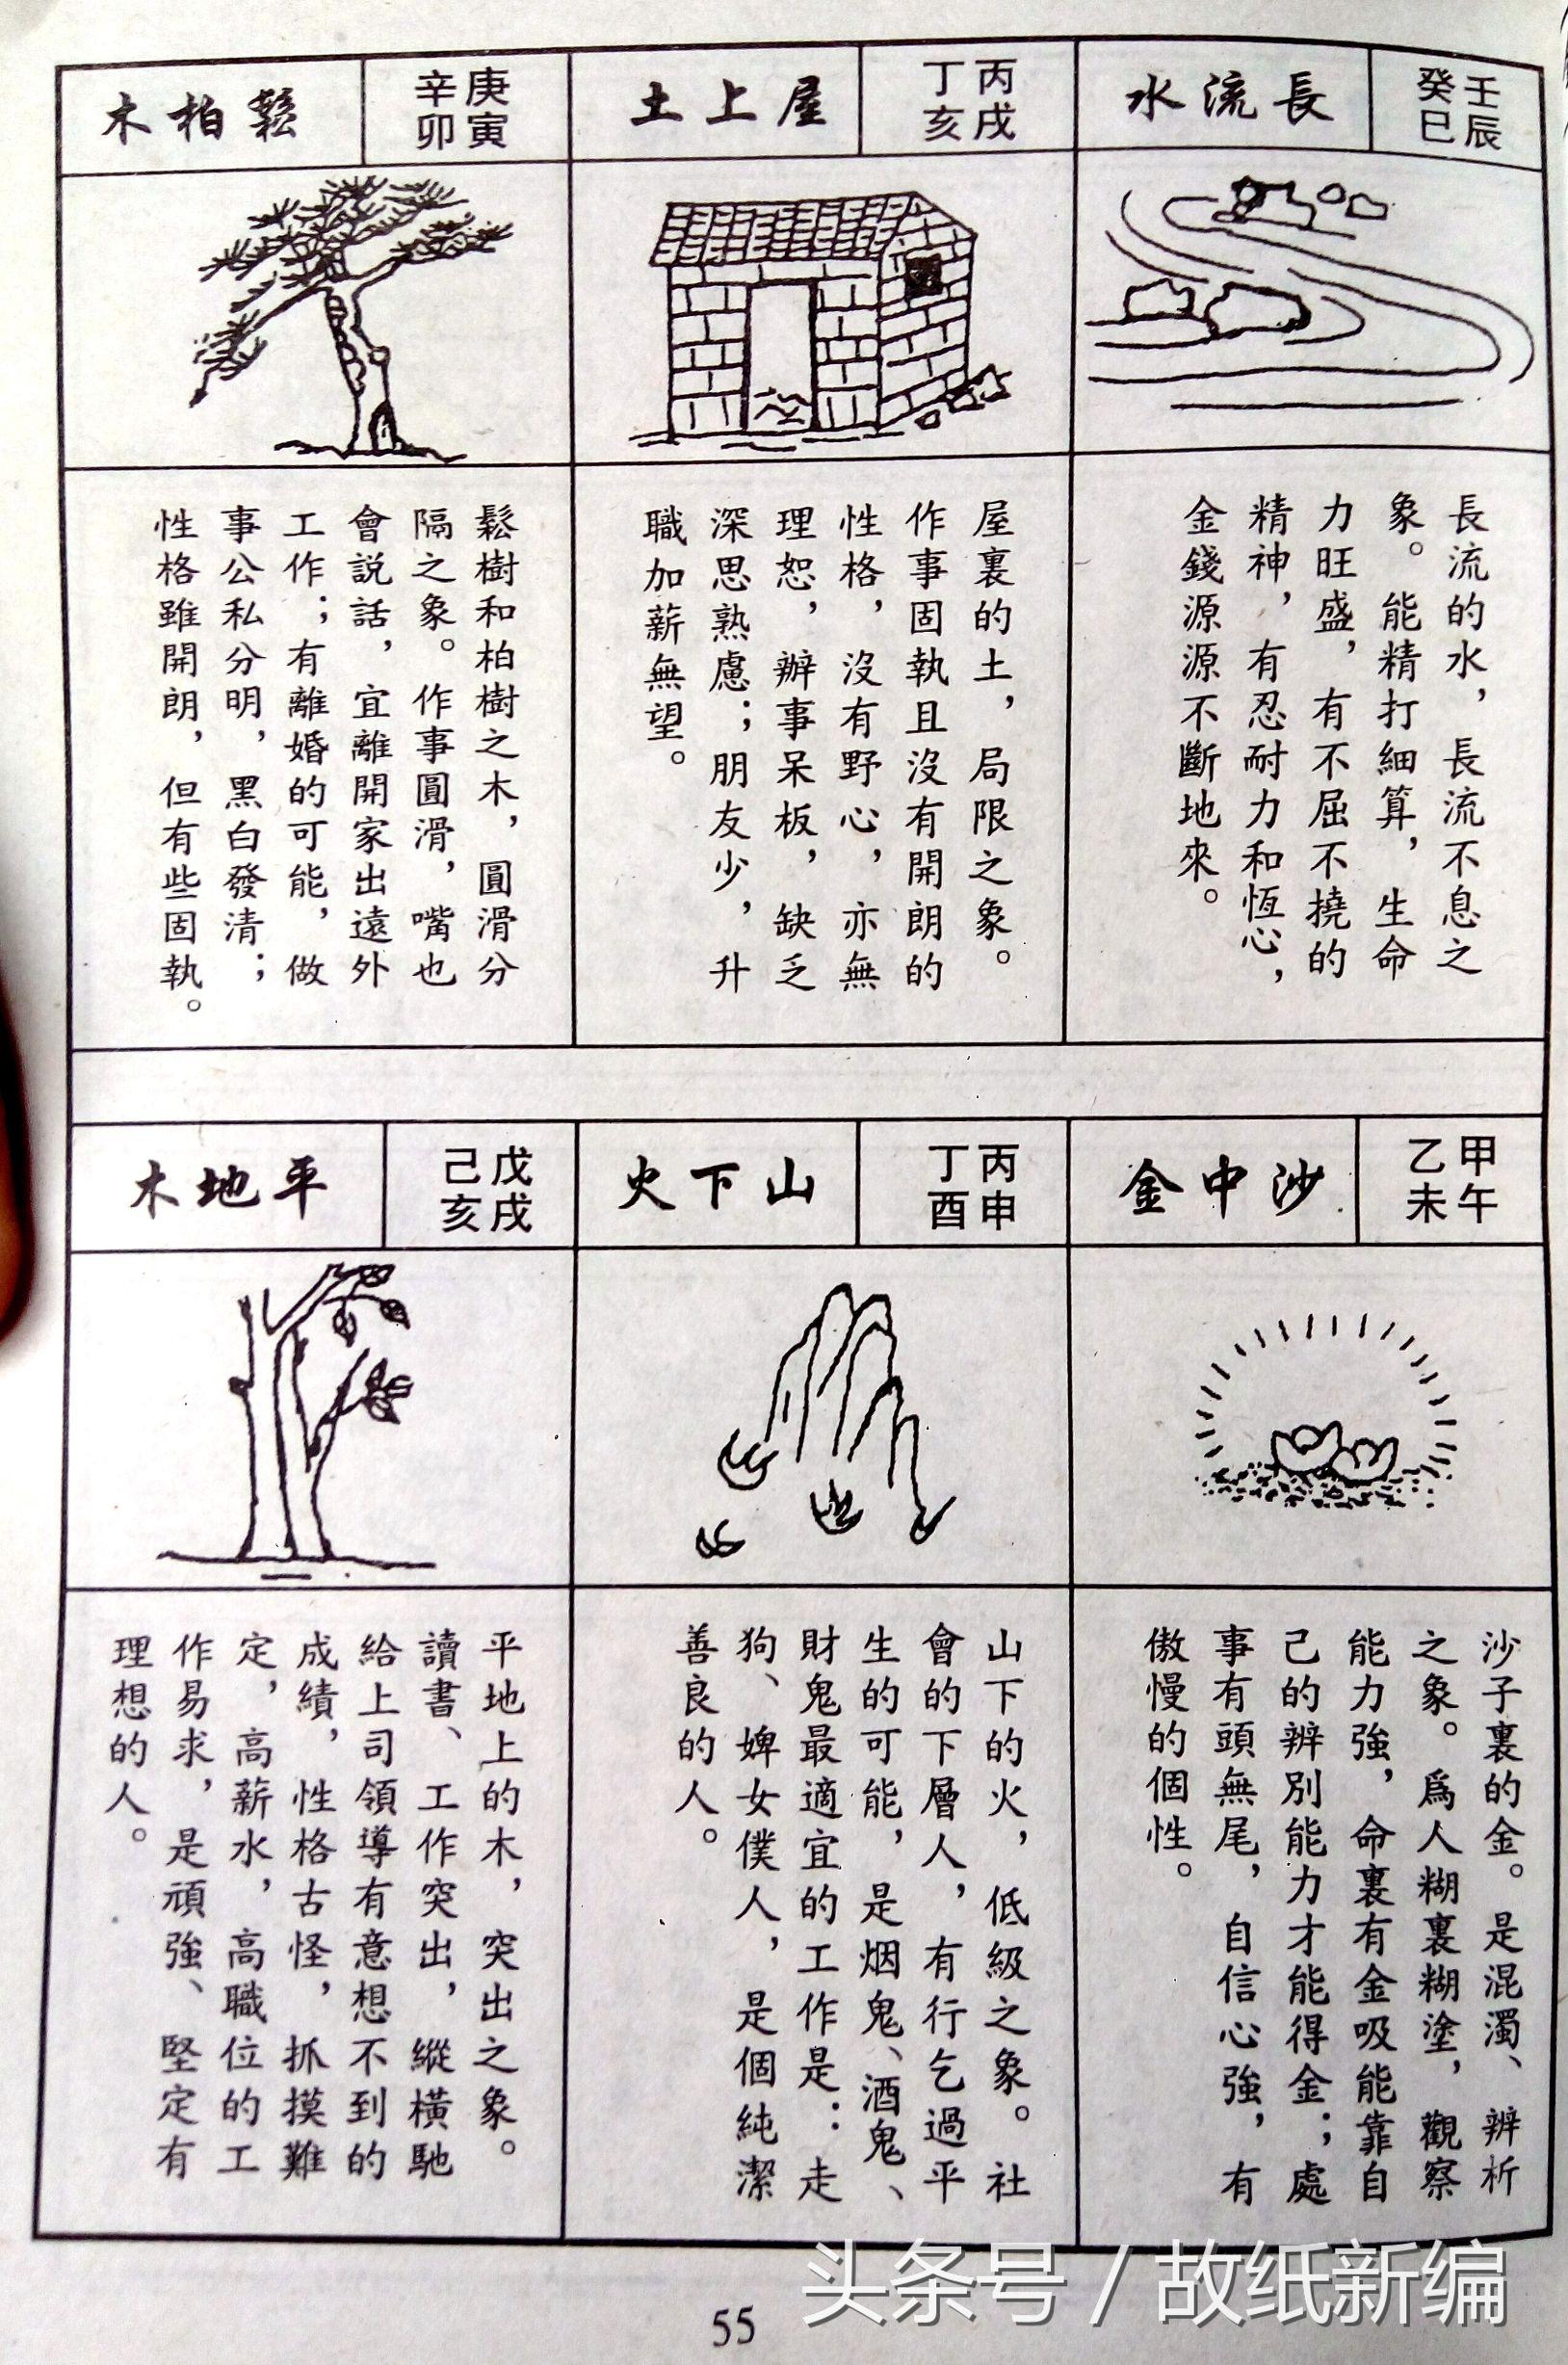 壬辰
癸巳
長流水
長流的水，長流不息之
象。能精打細算，生命
力旺盛，有不屈不撓的
精神，有忍耐力和恆心，
金錢源源不斷地來。
丙戌
丁亥
屋上土
屋裏的土，局限之象。
作事固執且沒有開朗的
性格，沒有野心，亦無
理恕，辦事呆板，缺乏
深思熟慮；朋友少，升
職加薪無望。
庚寅
辛卯
鬆柏木
鬆樹和柏樹之木，圓滑分
隔之象。作事圓滑，嘴也
會説話，宜離開家出遠外
工作；有離婚的可能，做
事公私分明，黑白發清；
性格雖開朗，但有些固執。
甲午
乙未
沙中金
沙子裏的金。是混濁、辨析
之象。爲人糊裏糊塗，觀察
能力強，命裏有金吸能靠自
己的辨別能力才能得金；處
事有頭無尾，自信心強，有
傲慢的個性。
丙申
丁酉
山下火
山下的火，低級之象。社
會的下層人，有行乞過平
生的可能，是烟鬼、酒鬼、
財鬼最適宜的工作是：走
狗、婢女僕人，是個純潔
善良的人。
戊戌
己亥
平地木
平地上的木，突出之象。
讀書、工作突出，縱橫馳
給上司領導有意想不到的
成績，性格古怪，抓摸難
定，高薪水，高職位的工
作易求，是頑強、堅定有
理想的人。
55
头条号 / 故纸新编